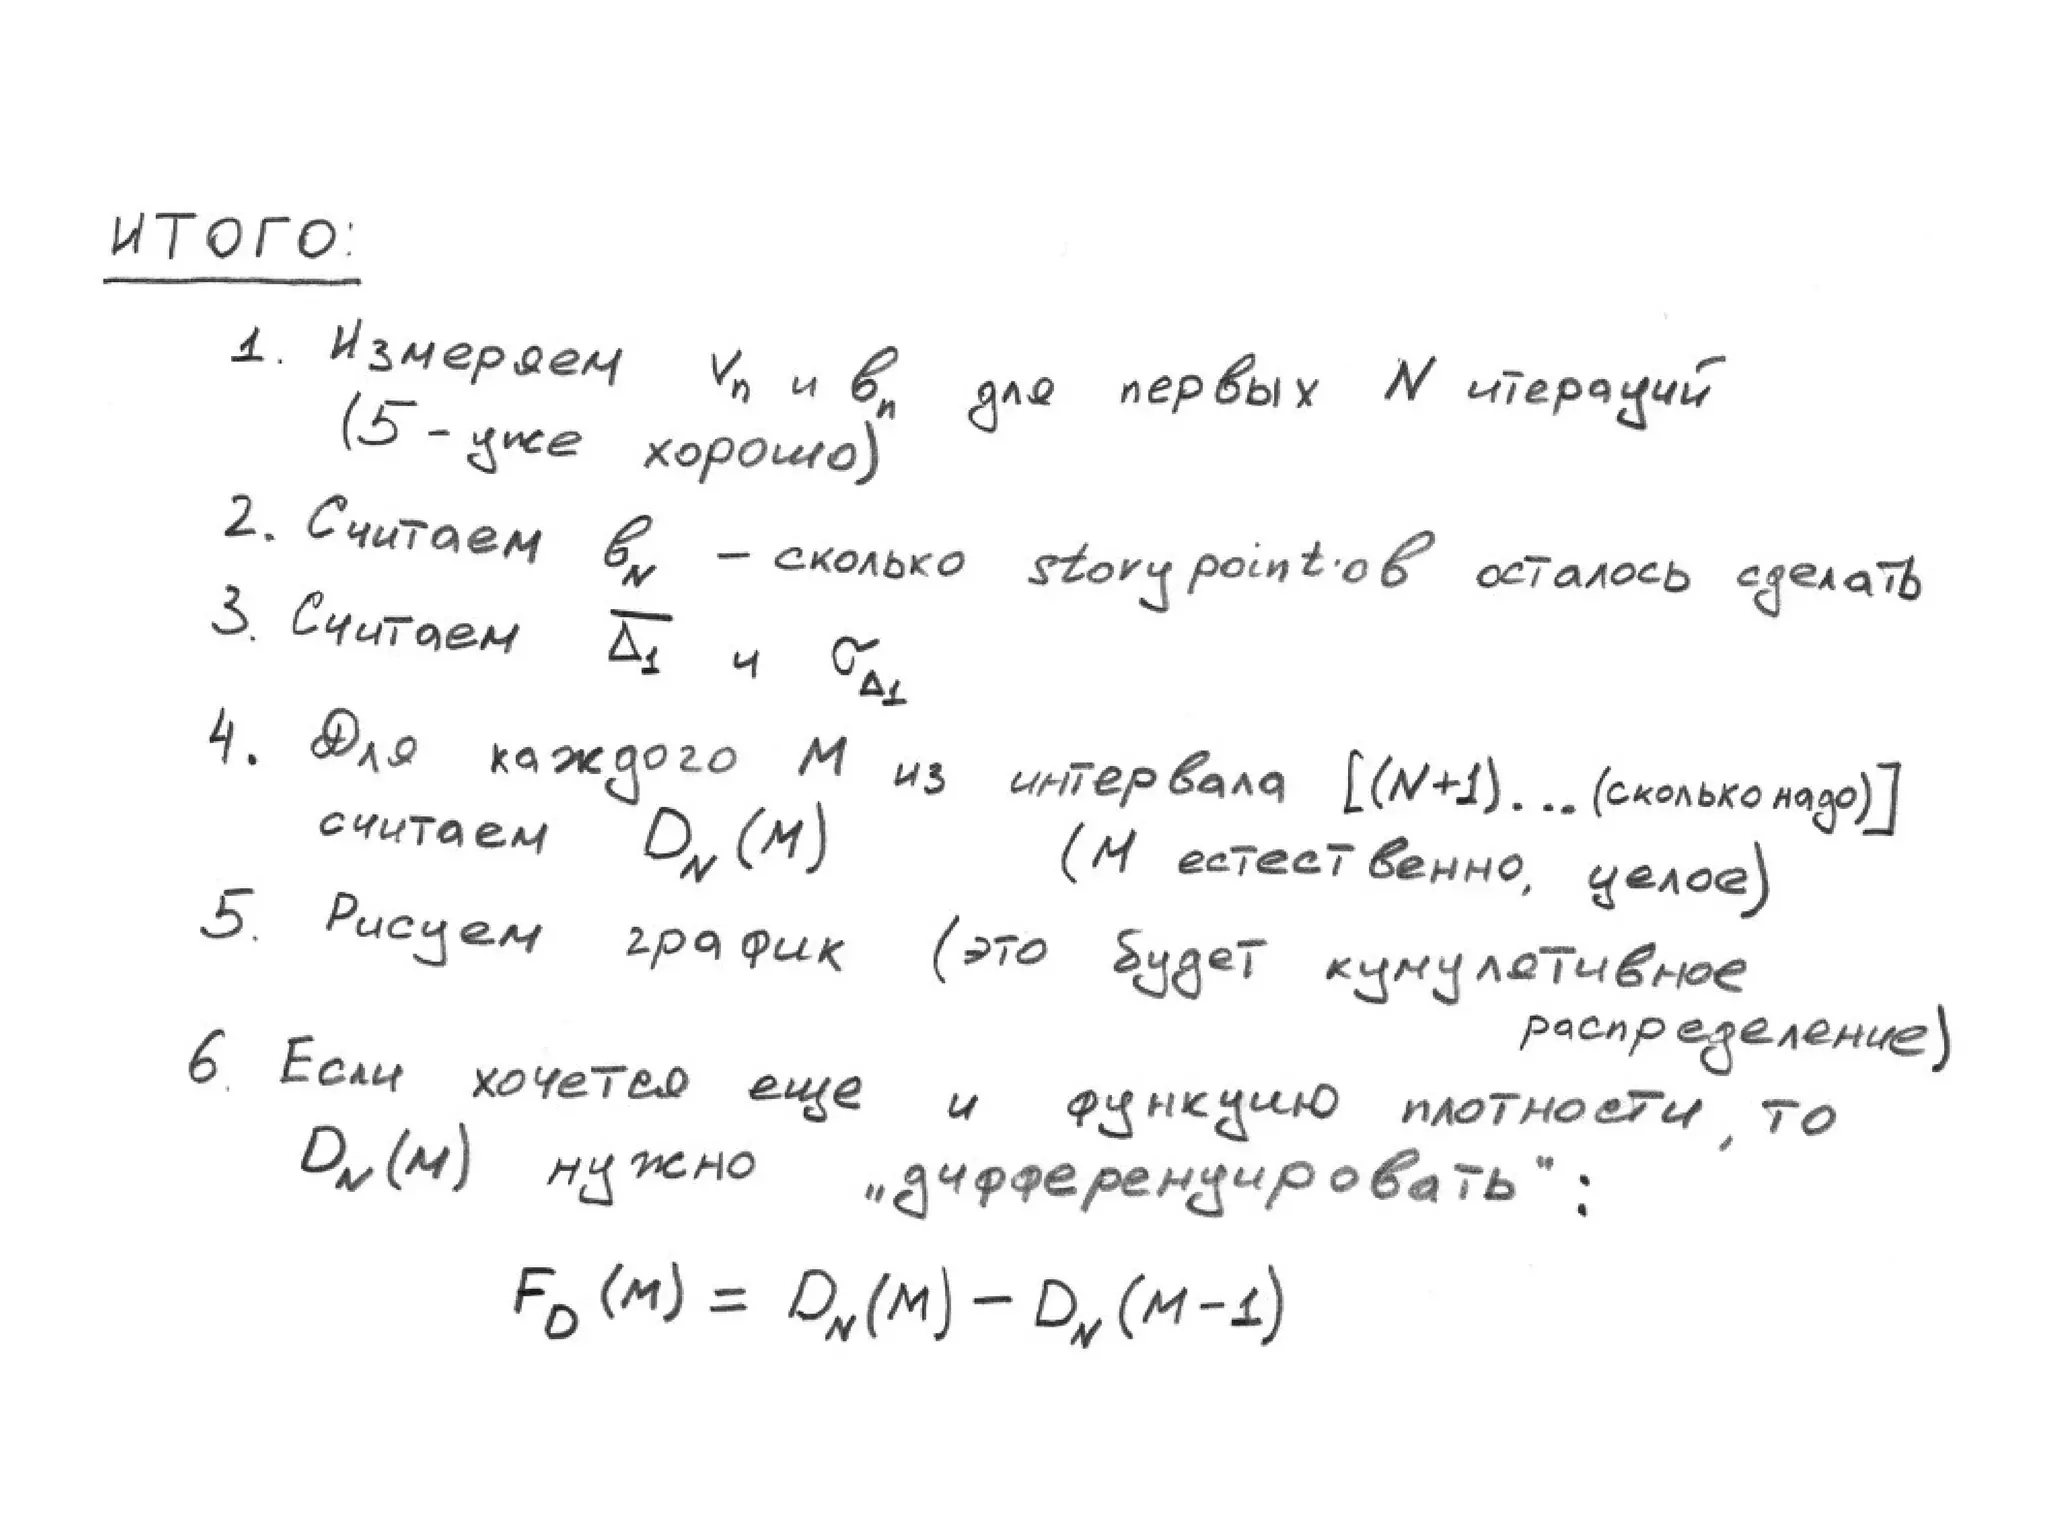 ИТОГО:
1. Измеряем vₙ и bₙ для первых N итераций
(5 - уже хорошо)
2. Считаем b_N – сколько story point·ов осталось сделать
3. Считаем Δ̅₁ и σ_Δ1
4. Для каждого M из интервала [(N+1)... (сколько надо)]
считаем D_N(M) (M естественно, целое)
5. Рисуем график (это будет кумулятивное
распределение)
6. Если хочется еще и функцию плотности, то
D_N(M) нужно „дифференцировать":
F_D(M) = D_N(M) - D_N(M-1)